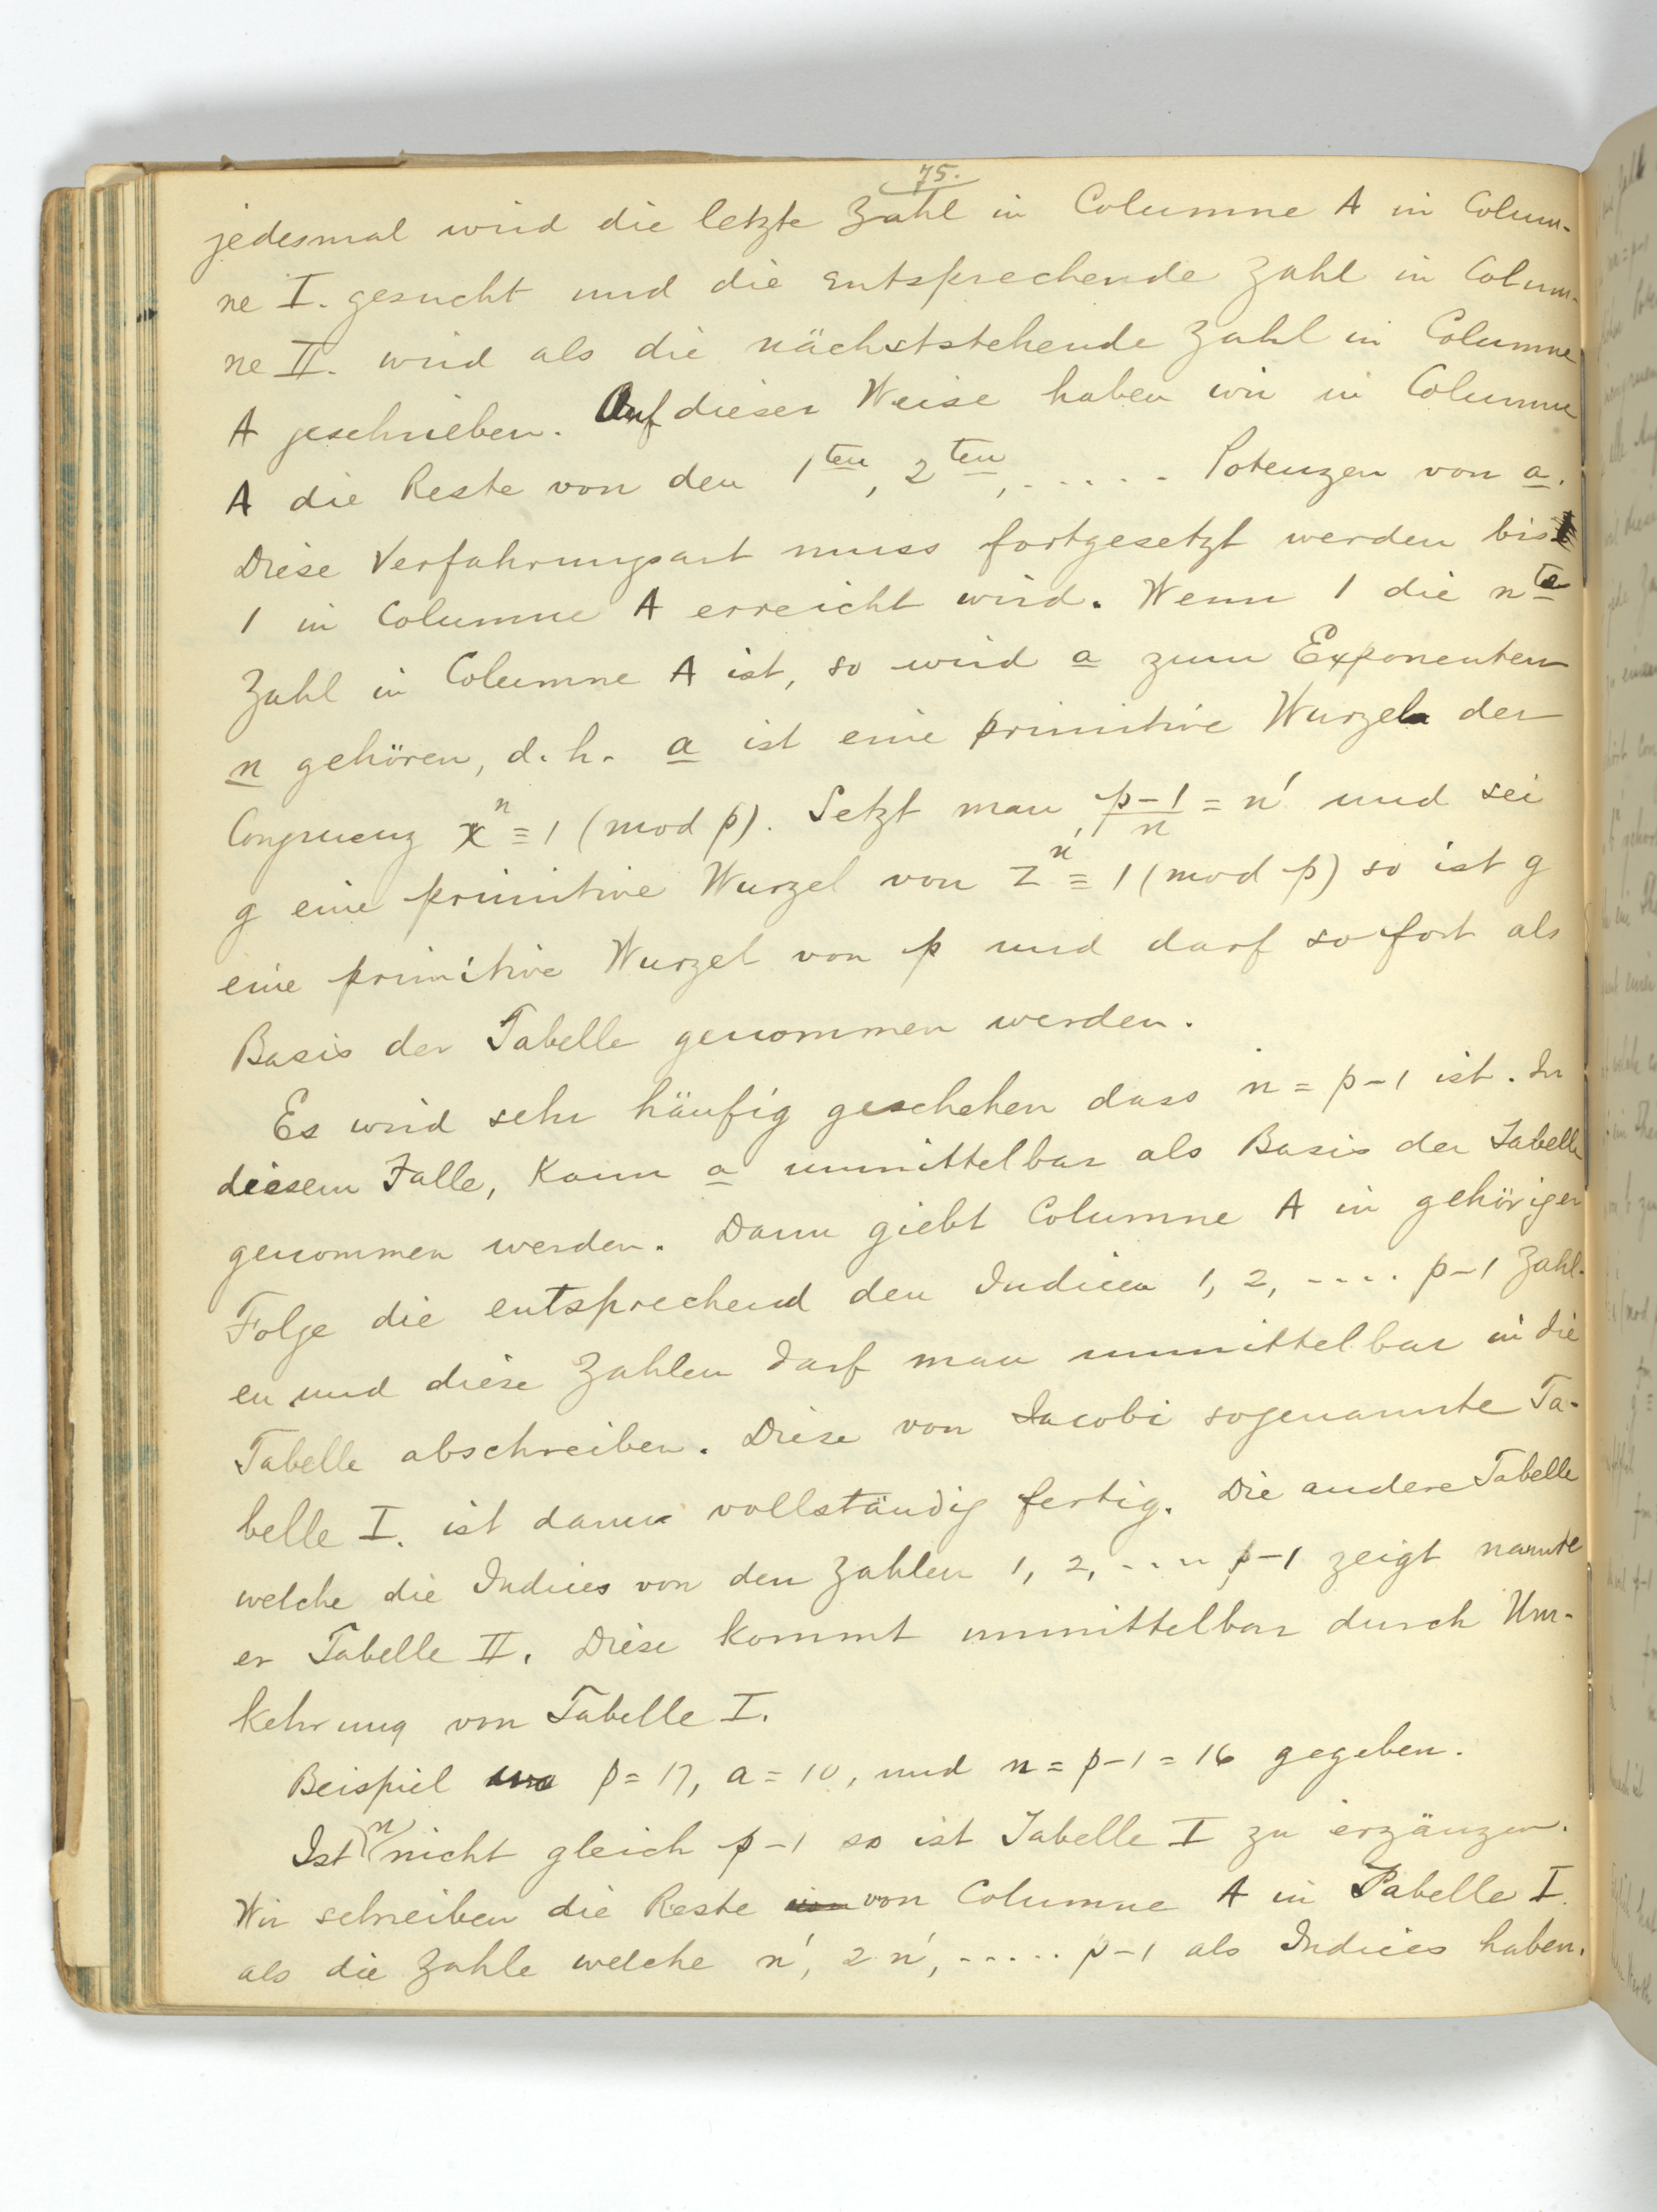 75.
jedesmal wird die letzte Zahl in Columne A in Colum-
ne I. gesucht und die entsprechende Zahl in Colum-
ne II. wird als die nächststehende Zahl in Columne
A geschrieben. Auf dieser Weise haben wir in Columne
A die Reste von den 1ten, 2ten, ..... Potenzen von a.
Diese Verfahrungsart muss fortgesetzt werden bis
1 in Columne A erreicht wird. Wenn 1 die nte
Zahl in Columne A ist, so wird a zum Exponenten
n gehören, d. h. a ist eine primitive Wurzel der
Congruenz x^n ≡ 1 (mod p). Setzt man, (p-1)/n = n' und sei
g eine primitive Wurzel von z^n ≡ 1 (mod p) so ist g
eine primitive Wurzel von p und darf sofort als
Basis der Tabelle genommen werden.
Es wird sehr häufig geschehen dass n = p-1 ist. In
diesem Falle, kann a unmittelbar als Basis der Tabelle
genommen werden. Dann giebt Columne A in gehöriger
Folge die entsprechend den Indicen 1, 2, .... p-1 Zahl-
en und diese Zahlen darf man unmittelbar in die
Tabelle abschreiben. Diese von Jacobi sogenannte Ta-
belle I. ist dann vollständig fertig. Die andere Tabelle
welche die Indices von den Zahlen 1, 2, .... p-1 zeigt nannte
er Tabelle II. Diese kommt unmittelbar durch Um-
kehrung von Tabelle I.
Beispiel p = 17, a = 10, und n = p-1 = 16 gegeben.
Ist n nicht gleich p-1 so ist Tabelle I zu erzänzen.
Wir schreiben die Reste von Columne A in Tabelle I.
als die Zahle welche n', 2n', ..... p-1 als Indices haben.